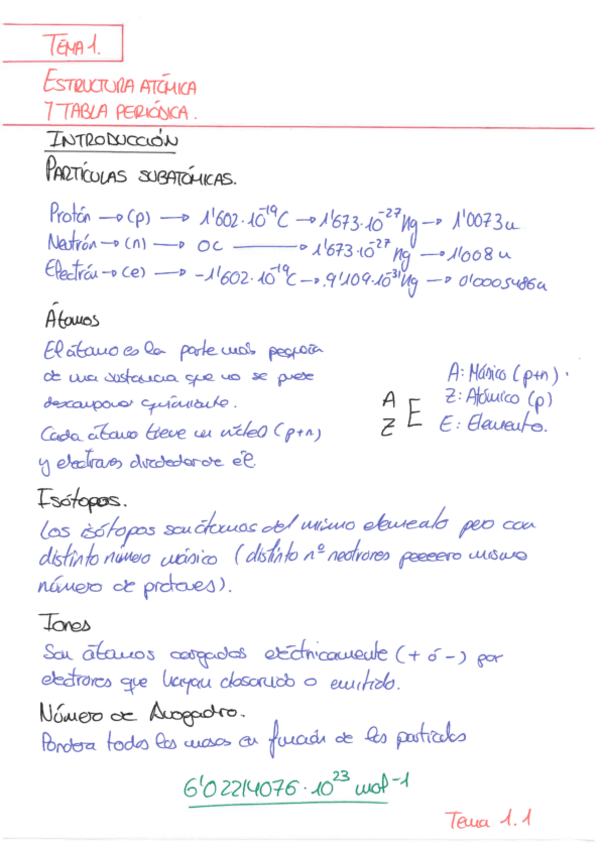 TEMA 1.
ESTRUCTURA ATÓMICA
Y TABLA PERIÓDICA.
INTRODUCCIÓN
PARTÍCULAS SUBATÓMICAS.
Protón → (p) → 1'602·10⁻¹⁹C → 1'673·10⁻²⁷Kg → 1'0073u
Neutrón → (n) → 0C → 1'673·10⁻²⁷Kg → 1'008u
Electrón → (e) → -1'602·10⁻¹⁹C → 9'109·10⁻³¹Kg → 0'0005486u
Átomos
El átomo es la parte más pequeña
de una sustancia que no se puede
descomponer químicamente.
Cada átomo tiene un núcleo (p+n)
y electrones alrededor de él.
A
Z E
A: Másico (p+n).
Z: Atómico (p)
E: Elemento.
Isótopos.
Los isótopos son átomos del mismo elemento pero con
distinto número másico (distinto nº neotrones peeeero mismo
número de protones).
Iones
Son átomos cargados eléctricamente (+ ó -) por
electrones que hayan absorvido o emitido.
Número de Avogadro.
Pondera todas las masas en función de las partículas
6'02214076·10²³ mol⁻¹
Tema 1.1